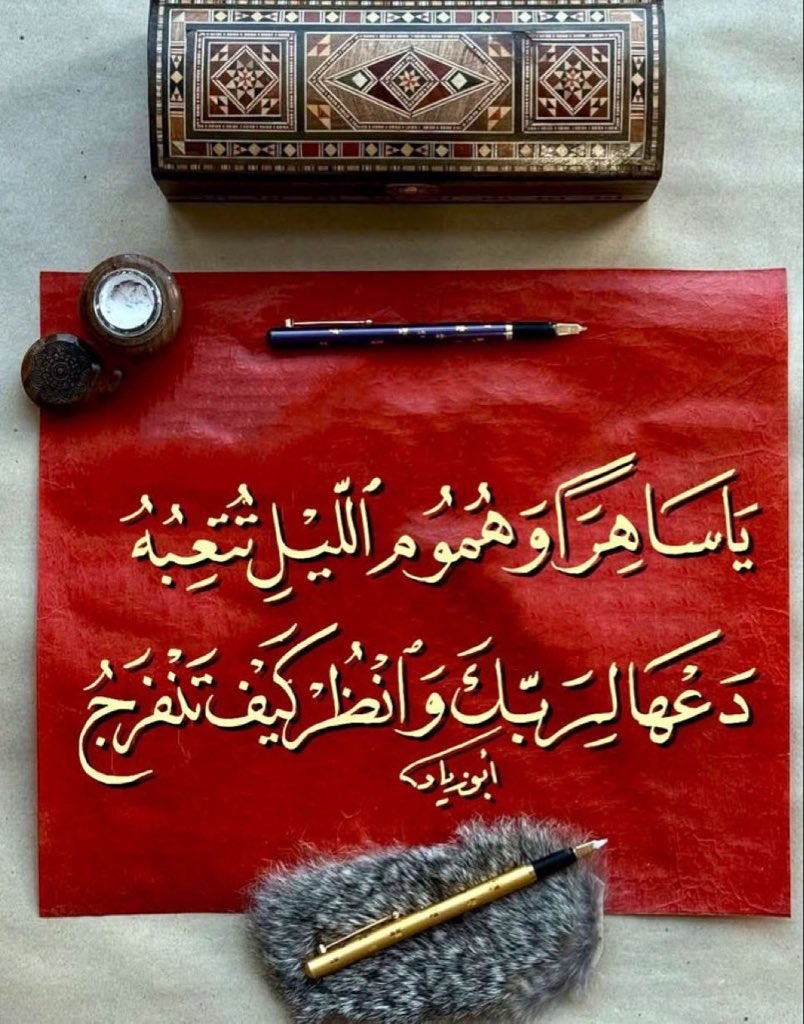 يَا سَاهِرًا وَهُمُومُ ٱللَّيْلِ تُتْعِبُهُ
دَعْهَا لِرَبِّكَ وَٱنْظُرْ كَيْفَ تَنْفَرِجُ
أبو زياد